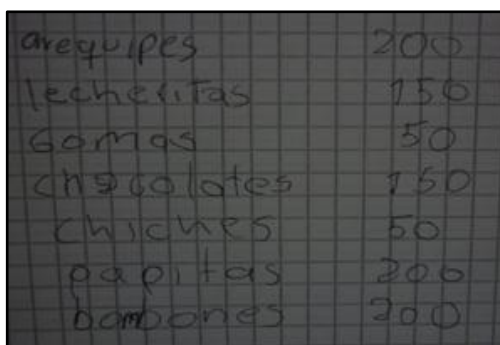 arequipes 200
lecheritas 150
Gomas 50
chocolates 150
chiches 50
papitas 200
bombones 200